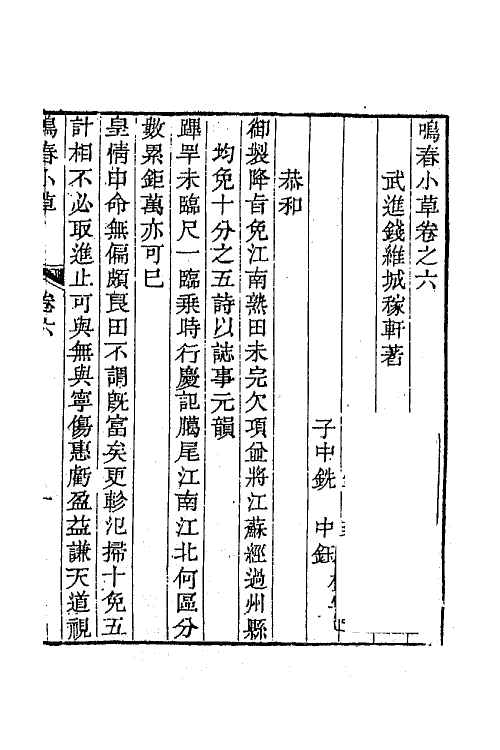 鳴春小草卷之六
武進錢維城稼軒著
子中銑 中鈺
恭和
御製降旨免江南熟田未完欠項並將江蘇經過州縣
均免十分之五詩以誌事元韻
蹕罕未臨尺一臨乘時行慶詎膓尾江南江北何區分
數累鉅萬亦可已
皇情申命無偏頗良田不謂旣富矣更軫氾掃十免五
計相不必取進止可與無與寧傷惠虧盈益謙天道視
鳴春小草 卷六 一